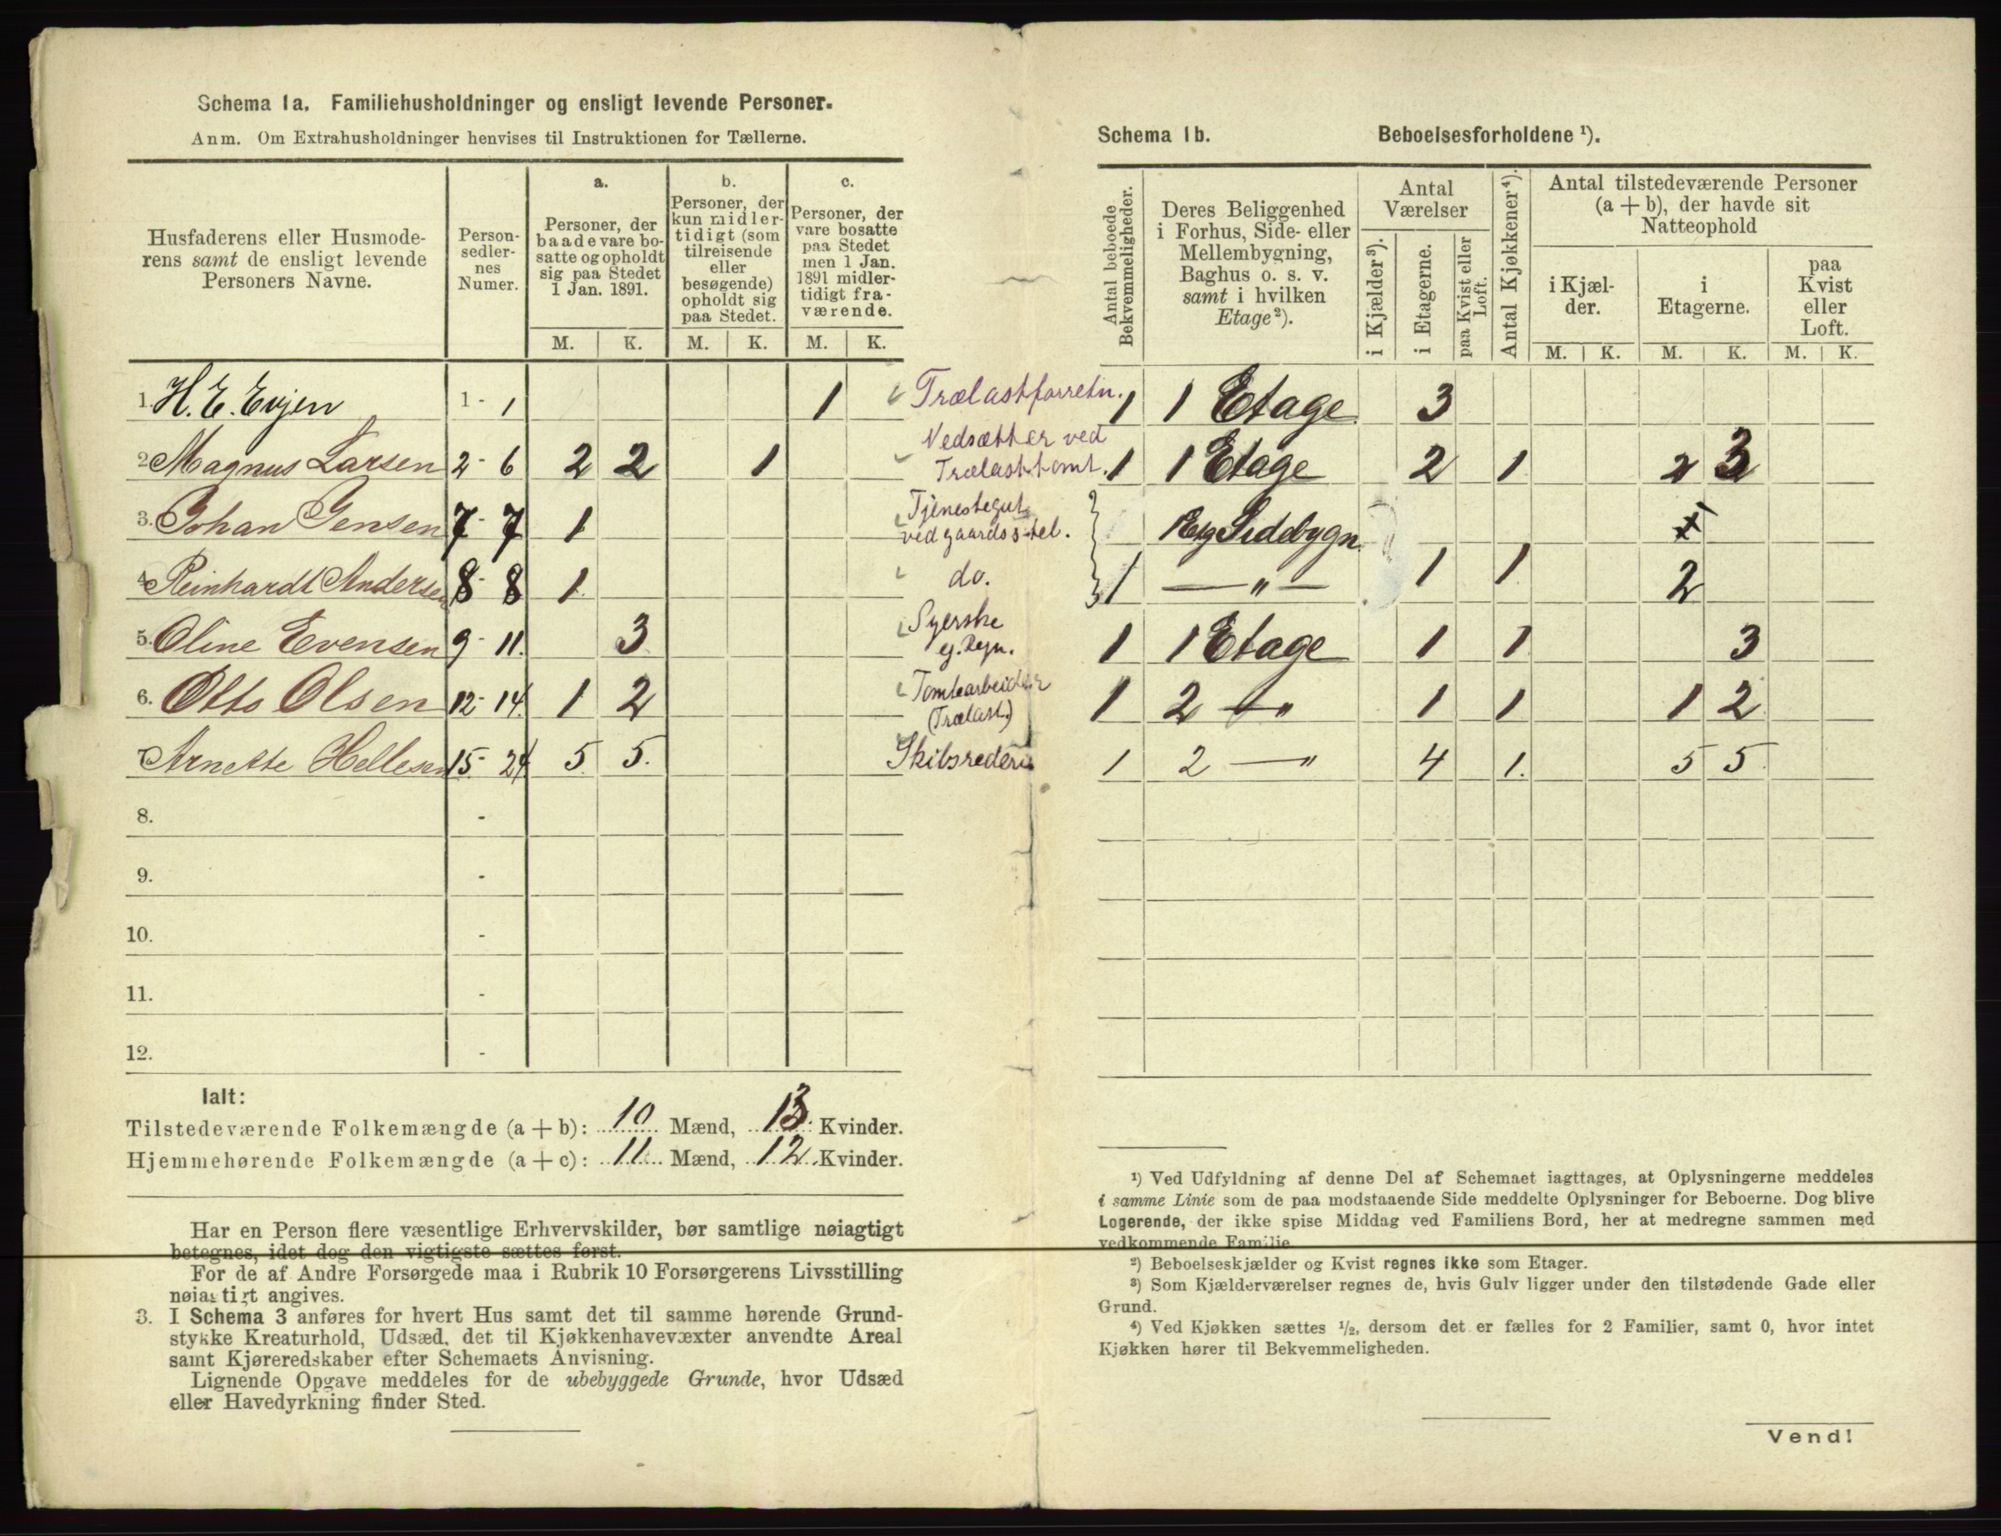 Schema 1a. Familiehusholdninger og ensligt levende Personer.
Anm. Om Extrahusholdninger henvises til Instruktionen for Tællerne.
Husfaderens eller Husmode-
rens samt de ensligt levende
Personers Navne.
Person-
sedler-
nes
Numer.
a.
Personer, der
baade vare bo-
satte og opholdt
sig paa Stedet
1 Jan. 1891.
b.
Personer, der
kun midler-
tidigt (som
tilreisende
eller
besøgende)
opholdt sig
paa Stedet.
c.
Personer, der
vare bosatte
paa Stedet
men 1 Jan.
1891 midler-
tidigt fra-
værende.
M. K. M. K. M. K.
1. H. E. Evjen 1 - 1 1 Trælastforretn.
2 Magnus Larsen 2 - 6 2 2 1 Nedsætter ved
Trælasttomt.
3. Johan Jensen 7 - 7 1 Tjenestegut
ved gaardsstel.
4. Reinhardt Andersen 8 - 8 1 do.
5. Oline Evensen 9 - 11. 3 Syerske
e. Regn.
6. Otto Olsen 12 - 14. 1 2 Tomtearbeider
(Trælast.)
7. Arnette Hellesen 15 - 24 5 5. Skibsrederi
8. -
9. -
10. -
11. -
12. -
Ialt:
Tilstedeværende Folkemængde (a + b): 10 Mænd, 13 Kvinder.
Hjemmehørende Folkemængde (a + c): 11 Mænd, 12 Kvinder.
Har en Person flere væsentlige Erhvervskilder, bør samtlige nøiagtigt
betegnes, idet dog den vigtigste sættes først.
For de af Andre Forsørgede maa i Rubrik 10 Forsørgerens Livsstilling
nøiagtigt angives.
3. I Schema 3 anføres for hvert Hus samt det til samme hørende Grund-
stykke Kreaturhold, Udsæd, det til Kjøkkenhavevæxter anvendte Areal
samt Kjøreredskaber efter Schemaets Anvisning.
Lignende Opgave meddeles for de ubebyggede Grunde, hvor Udsæd
eller Havedyrkning finder Sted.
Schema 1b. Beboelsesforholdene ¹).
Antal beboede
Bekvemmeligheder.
Deres Beliggenhed
i Forhus, Side- eller
Mellembygning,
Baghus o. s. v.
samt i hvilken
Etage ²).
Antal
Værelser
i Kjælder ³).
i Etagerne.
paa Kvist eller
Loft.
Antal Kjøkkener ⁴).
Antal tilstedeværende Personer
(a + b), der havde sit
Natteophold
i Kjæl-
der.
i
Etagerne.
paa
Kvist
eller
Loft.
M. K. M. K. M. K.
1 1 Etage 3
1 1 Etage 2 1 2 3
1 Etg Sidebygn
1 — " — 1 1 2
1 1 Etage 1 1 3
1 2 — " 1 1 1 2
1 2 — " 4 1. 5 5
¹) Ved Udfyldning af denne Del af Schemaet iagttages, at Oplysningerne meddeles
i samme Linie som de paa modstaaende Side meddelte Oplysninger for Beboerne. Dog blive
Logerende, der ikke spise Middag ved Familiens Bord, her at medregne sammen med
vedkommende Familie
²) Beboelseskjælder og Kvist regnes ikke som Etager.
³) Som Kjælderværelser regnes de, hvis Gulv ligger under den tilstødende Gade eller
Grund.
⁴) Ved Kjøkken sættes ½, dersom det er fælles for 2 Familier, samt 0, hvor intet
Kjøkken hører til Bekvemmeligheden.
Vend!